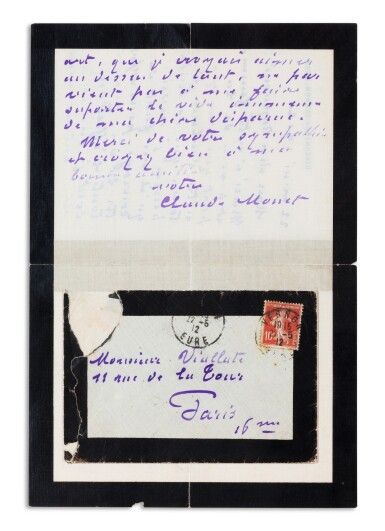 art, que j croyais aimer
au dessus de tout, ne par
vient pas à me faire
suporter le vide
de ma chère disparue.
Merci de votre sympathie
et croyez bien à mes
votre
Claude Monet
12
EURE
10
Monsieur Viallate
11 rue de la Tour
Paris
16 me